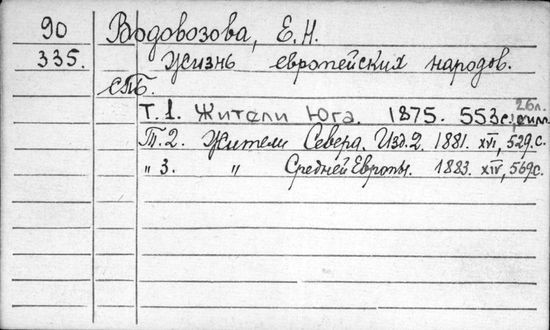 90 Водовозова, Е. Н.
335. Жизнь европейских народов.
СПБ.
Т. 1. Жители Юга. 1875. 553с., 26л. илл.
Т. 2. Жители Севера. Изд. 2. 1881. XVI, 529.с.
" 3. " Средней Европы. 1883. XIV, 569с.